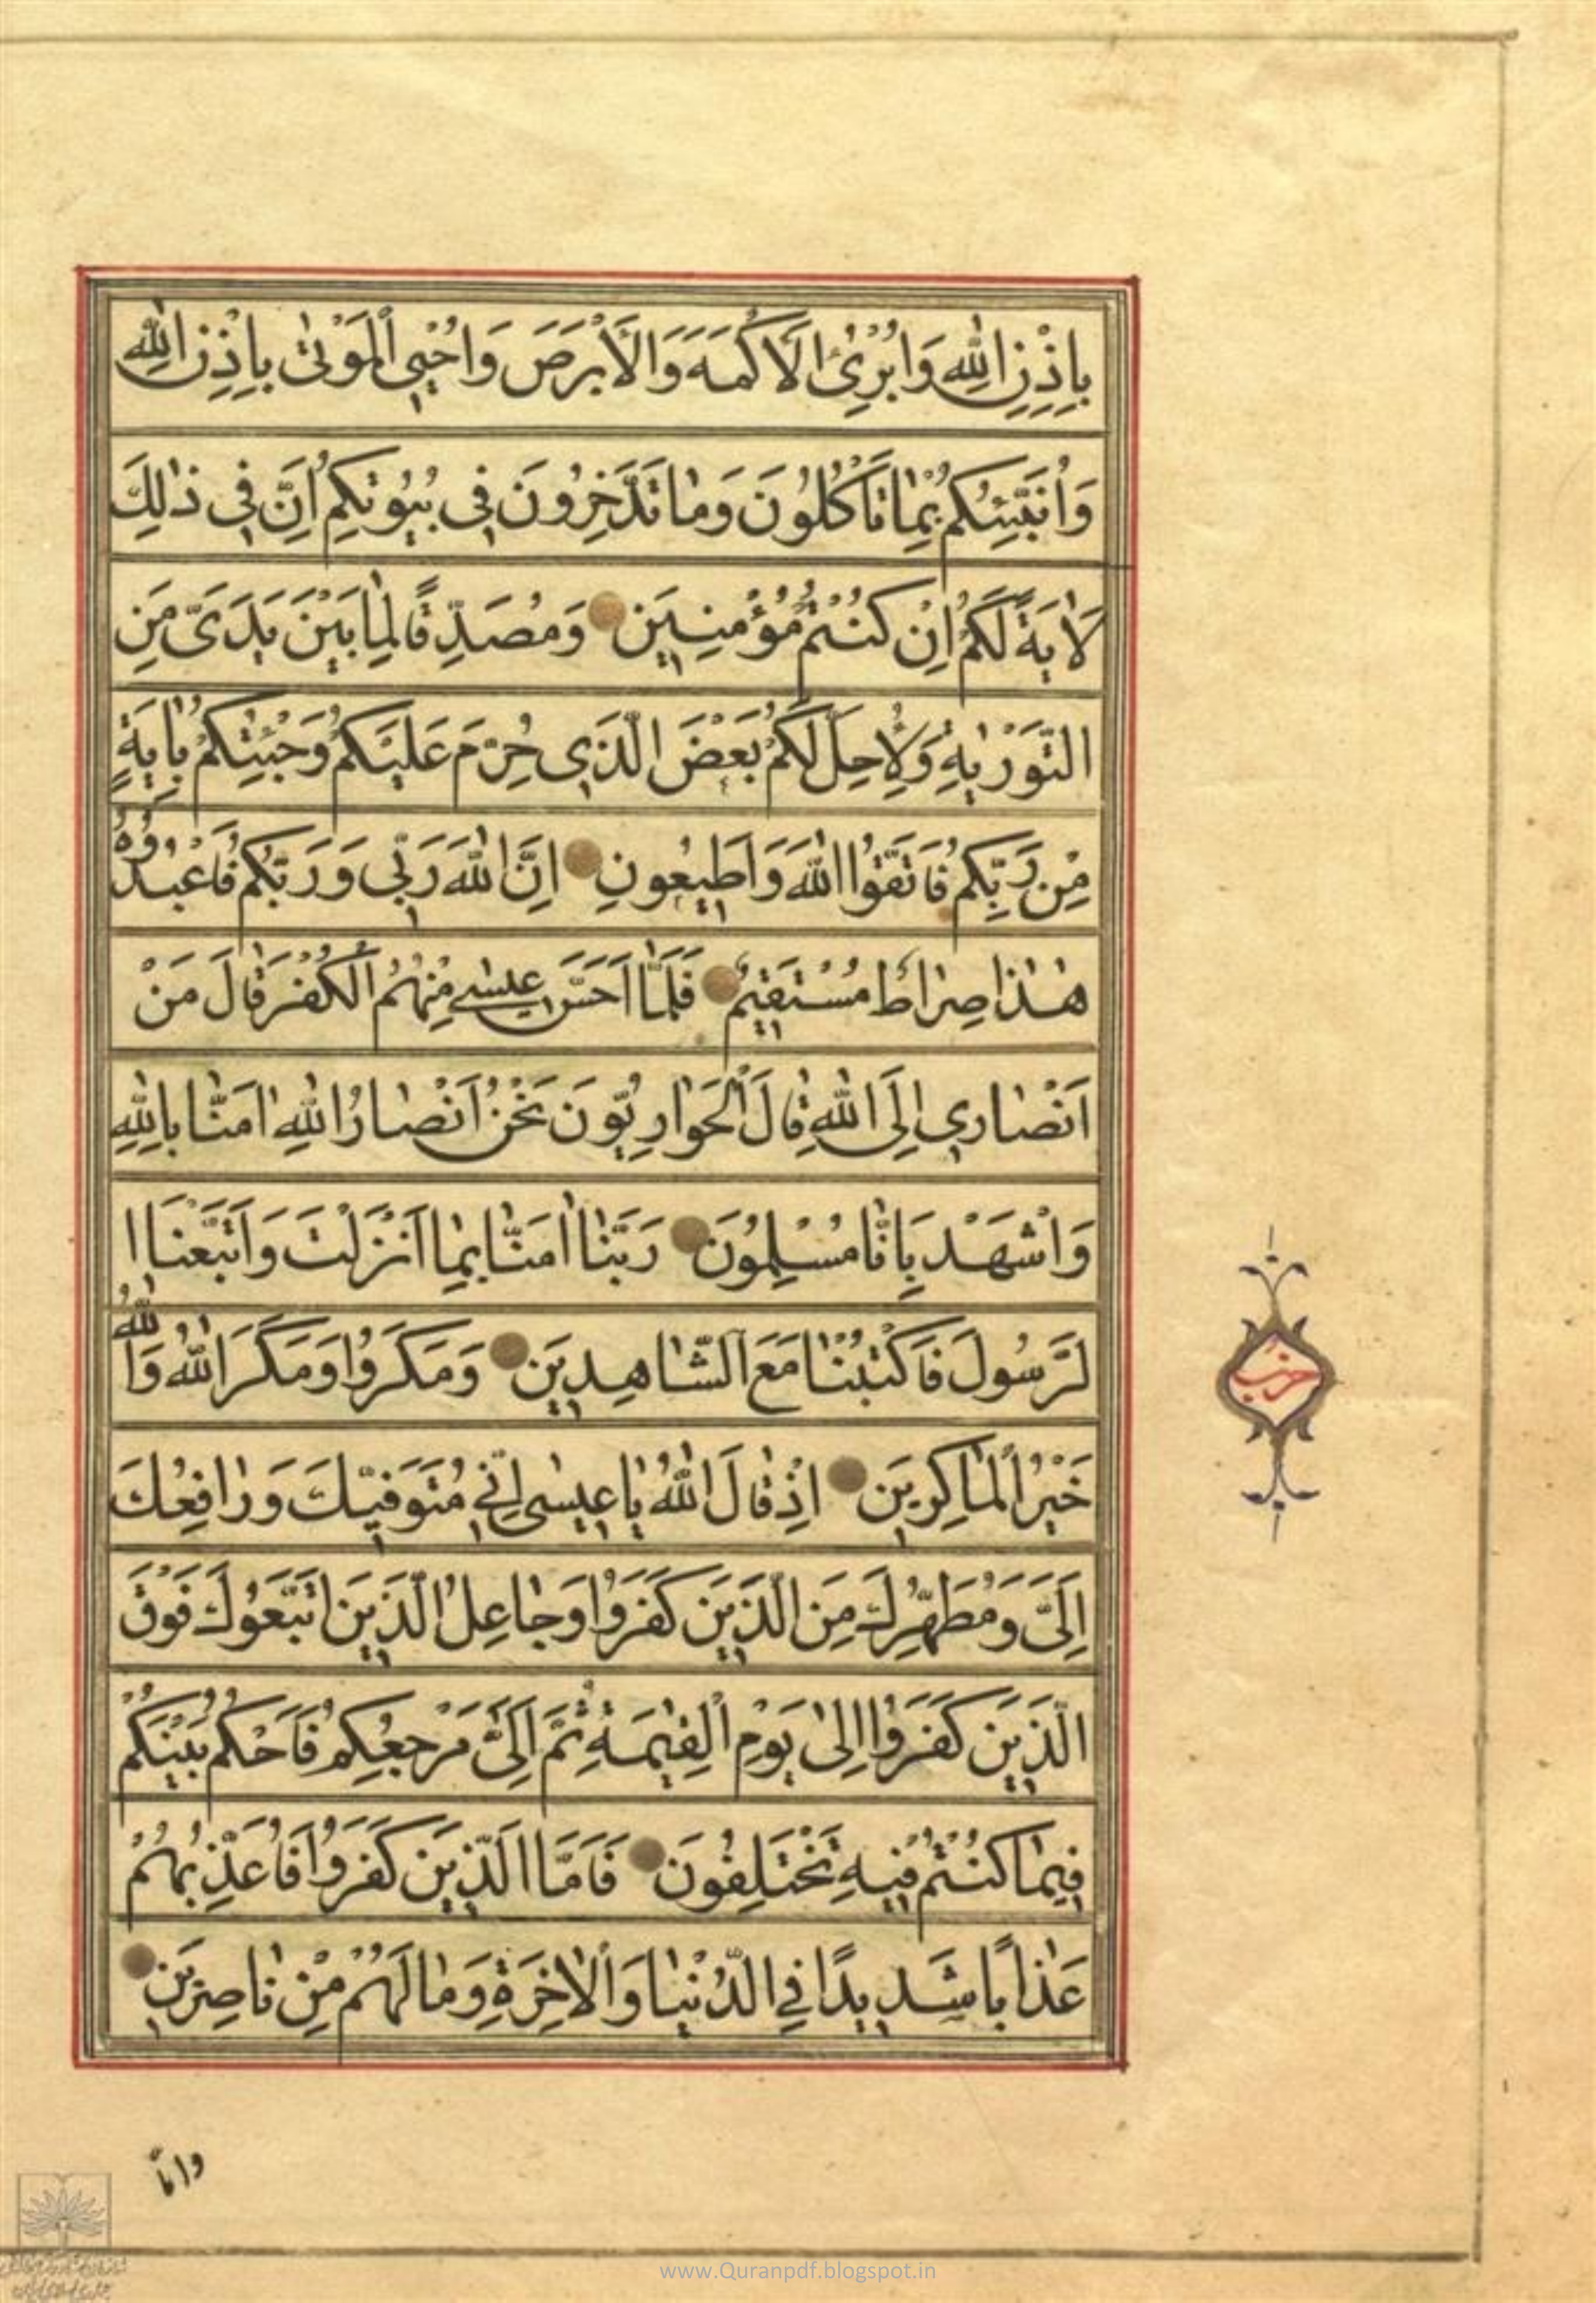 بِاِذْنِ اللّٰهِ وَاُبْرِئُ الْاَكْمَهَ وَالْاَبْرَصَ وَاُحْيِي الْمَوْتٰى بِاِذْنِ اللّٰهِ
وَاُنَبِّئُكُمْ بِمٰا تَأْكُلُونَ وَمٰا تَدَّخِرُونَ فِي بُيُوتِكُمْ اِنَّ فِي ذٰلِكَ
لَاٰيَةً لَكُمْ اِنْ كُنْتُمْ مُؤْمِنِينَ وَمُصَدِّقًا لِمٰا بَيْنَ يَدَيَّ مِنَ
التَّوْرٰيةِ وَلِاُحِلَّ لَكُمْ بَعْضَ الَّذِي حُرِّمَ عَلَيْكُمْ وَجِئْتُكُمْ بِاٰيَةٍ
مِنْ رَبِّكُمْ فَاتَّقُوا اللّٰهَ وَاَطِيعُونِ اِنَّ اللّٰهَ رَبِّي وَرَبُّكُمْ فَاعْبُدُوهُ
هٰذٰا صِرٰاطٌ مُسْتَقِيمٌ فَلَمَّا اَحَسَّ عِيسٰى مِنْهُمُ الْكُفْرَ قٰالَ مَنْ
اَنْصٰارِي اِلَى اللّٰهِ قٰالَ الْحَوٰارِيُّونَ نَحْنُ اَنْصٰارُ اللّٰهِ اٰمَنّٰا بِاللّٰهِ
وَاشْهَدْ بِاَنّٰا مُسْلِمُونَ رَبَّنٰا اٰمَنّٰا بِمٰا اَنْزَلْتَ وَاتَّبَعْنَا ا
لرَّسُولَ فَاكْتُبْنٰا مَعَ الشّٰاهِدِينَ وَمَكَرُوا وَمَكَرَ اللّٰهُ وَاللّٰهُ
خَيْرُ الْمٰاكِرِينَ اِذْ قٰالَ اللّٰهُ يٰا عِيسٰى اِنِّي مُتَوَفِّيكَ وَرٰافِعُكَ
اِلَيَّ وَمُطَهِّرُكَ مِنَ الَّذِينَ كَفَرُوا وَجٰاعِلُ الَّذِينَ اتَّبَعُوكَ فَوْقَ
الَّذِينَ كَفَرُوا اِلٰى يَوْمِ الْقِيٰمَةِ ثُمَّ اِلَيَّ مَرْجِعُكُمْ فَاَحْكُمُ بَيْنَكُمْ
فِيمٰا كُنْتُمْ فِيهِ تَخْتَلِفُونَ فَاَمَّا الَّذِينَ كَفَرُوا فَاُعَذِّبُهُمْ
عَذٰابًا شَدِيدًا فِي الدُّنْيٰا وَالْاٰخِرَةِ وَمٰا لَهُمْ مِنْ نٰاصِرِينَ
حزب
وامّا
www.Quranpdf.blogspot.in